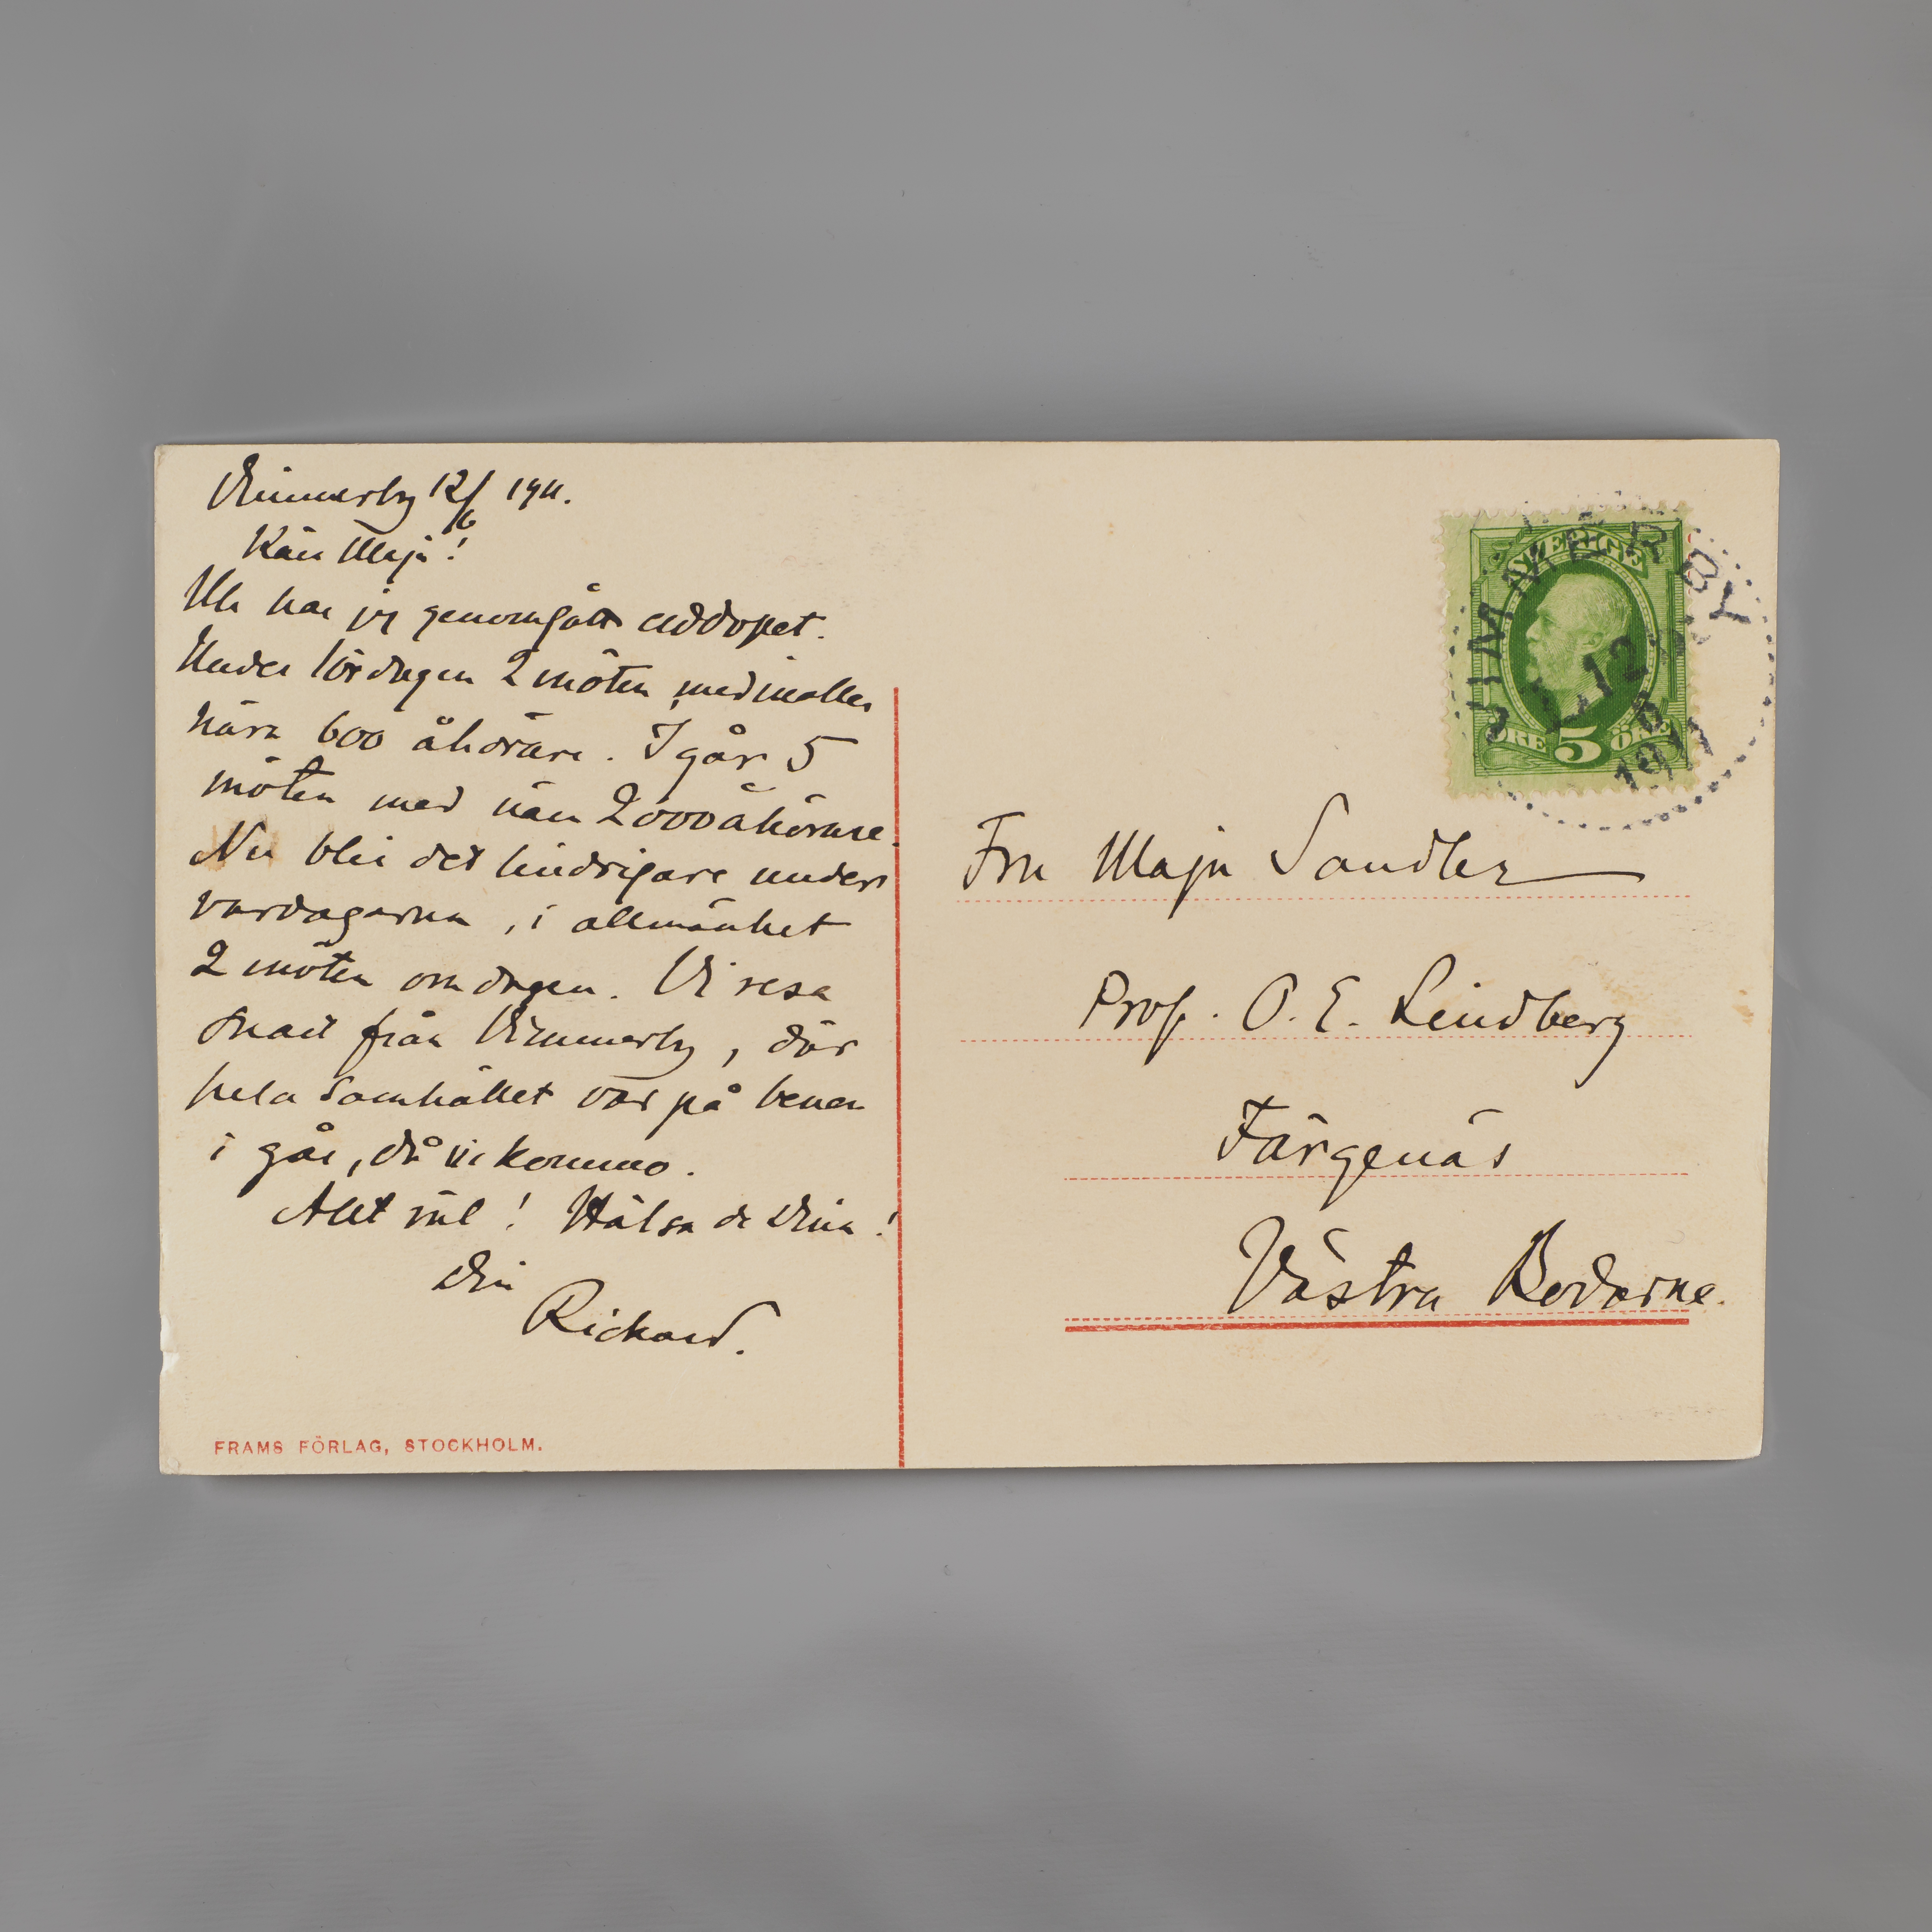 Vimmerby 12/6 1911.
Kära Maja!
Nu har jag genomgått elddopet.
Under lördagen 2 möten med inalles
nära 600 åhörare. I går 5
möten med nära 2000 åhörare.
Nu blir det lindrigare under
vardagarna, i allmänhet
2 möten om dagen. Vi resa
snart från Vimmerby, där
hela samhället var på benen
i går, då vi kommo.
Allt väl! Hälsa de Dina!
Din
Rickard.
FRAMS FÖRLAG, STOCKHOLM.
SVERIGE
ÖRE 5 ÖRE
VIMMERBY
12 6
1911
Fru Maja Sandler
Prof. O. E. Lindberg
Färgenäs
Västra Bodarne.